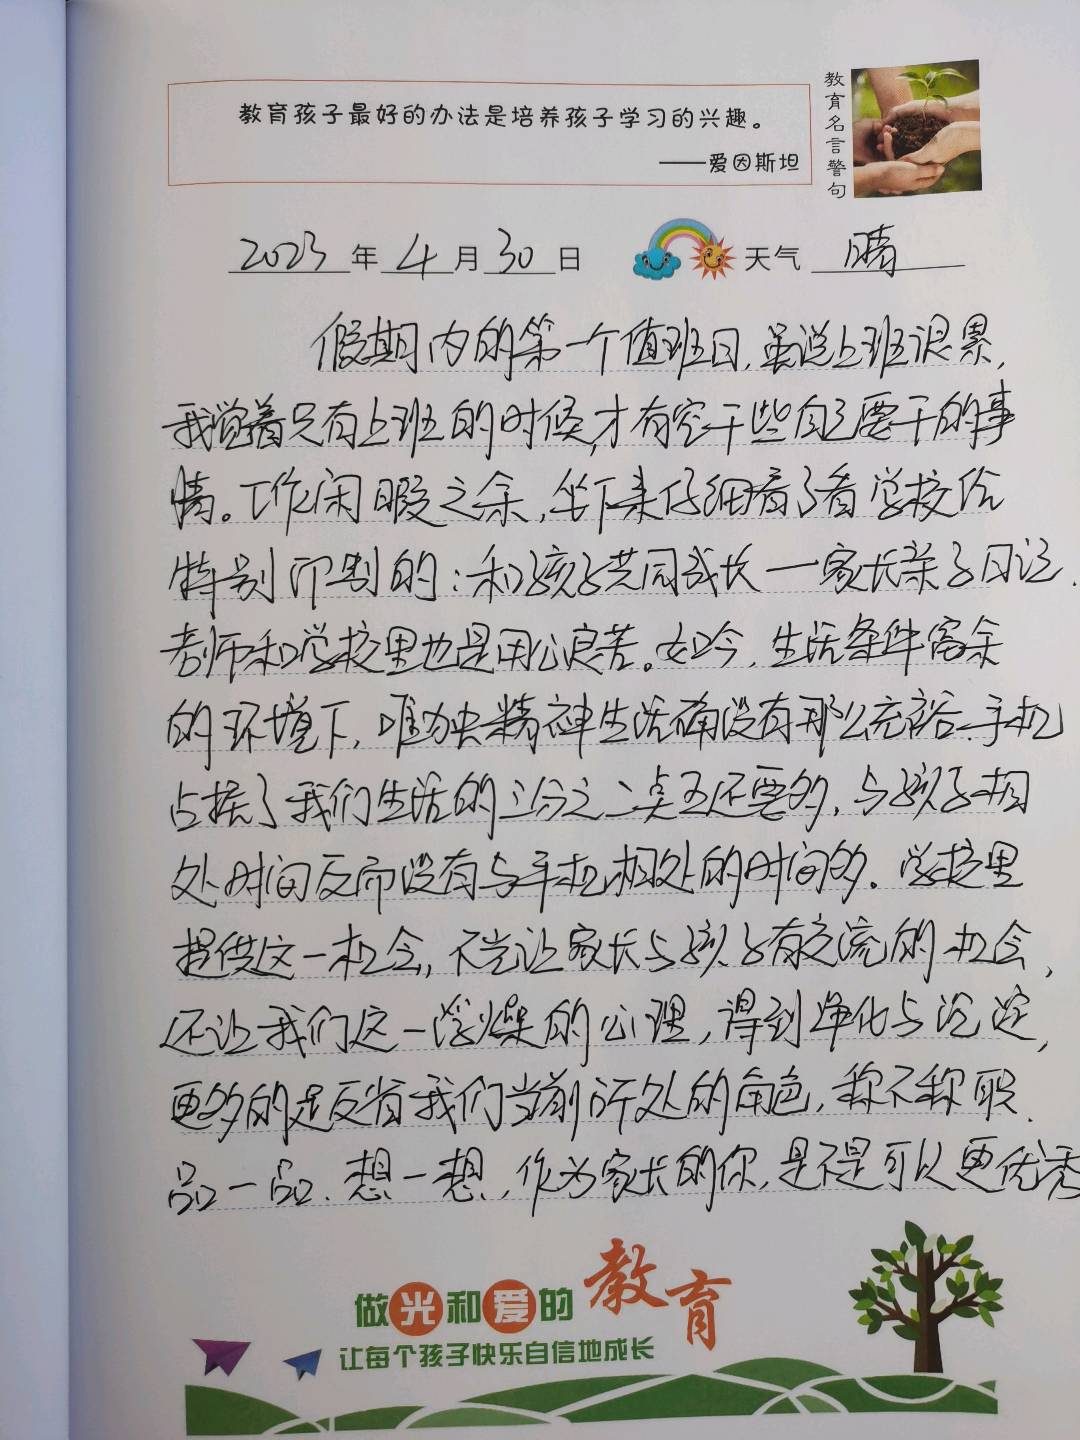 教育孩子最好的办法是培养孩子学习的兴趣。
——爱因斯坦
教育名言警句
2023年4月30日 天气 晴
假期内的第一个值班日，虽说上班很累，
我觉着只有上班的时候，才有空干些自己要干的事
情。工作闲暇之余，坐下来仔细看了看学校给
特别印制的：和孩子共同成长一家长亲子日记.
老师和学校里也是用心良苦。如今，生活条件富余
的环境下，唯独精神生活确没有那么充裕.手机
占据了我们生活的三分之二甚至还要多，与孩子相
处时间反而没有与手机相处的时间多。学校里
提供这一机会，不光让家长与孩子有交流的机会，
还让我们这一浮燥的心理，得到净化与沉淀，
更多的是反省我们当前所处的角色，称不称职.
品一品.想一想，作为家长的你，是不是可以更优秀
做光和爱的教育
让每个孩子快乐自信地成长